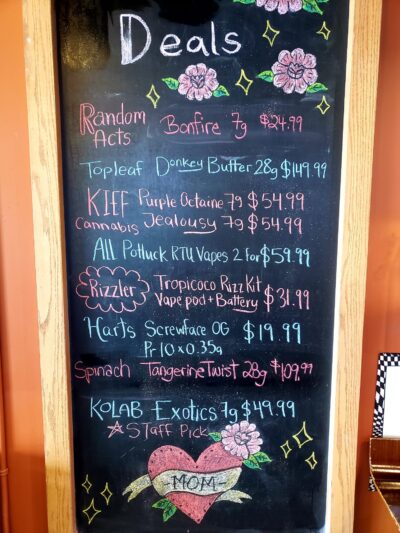 Deals
Random Acts Bonfire 7g $24.99
Topleaf Donkey Butter 28g $149.99
KIEF Cannabis Purple Octane 7g $54.99
Jealousy 7g $54.99
All Potluck RTU Vapes 2 for $59.99
Rizzler Tropicoco Rizz Kit
Vape pod + Battery $31.99
Harts Screwface OG $19.99
Pr 10 x 0.35g
Spinach Tangerine Twist 28g $109.99
KOLAB Exotics 7g $49.99
Staff Pick
-MOM-